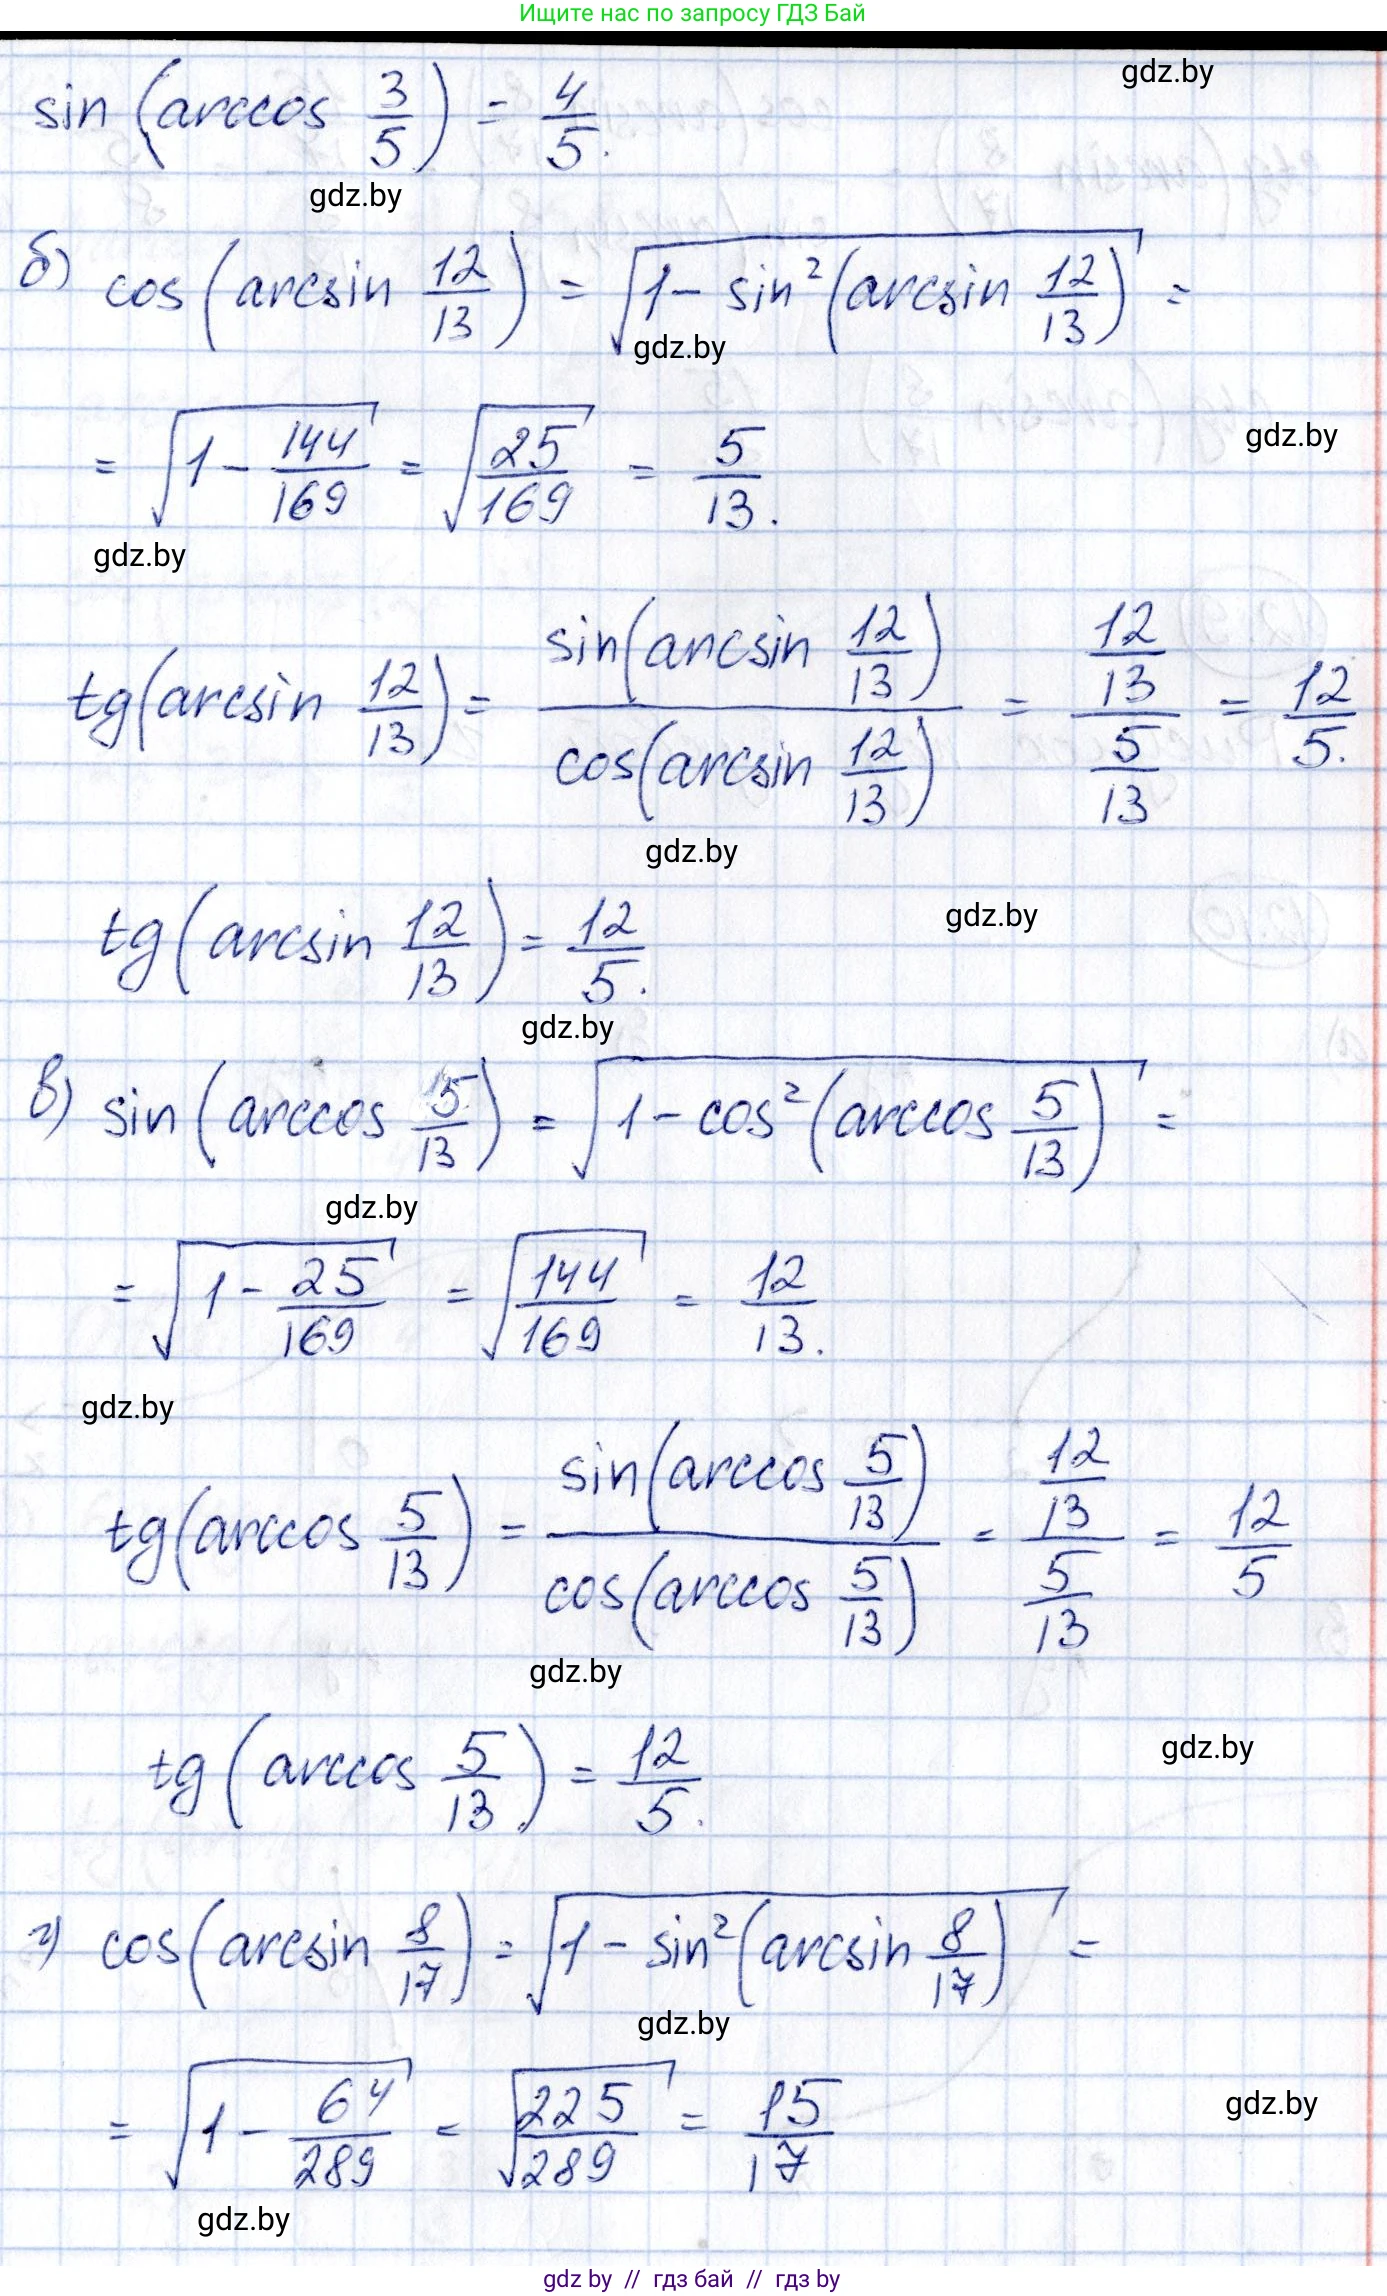 Ищите нас по запросу ГДЗ Бай
gdz.by
sin (arccos 3/5) = 4/5.
gdz.by
б) cos (arcsin 12/13) = √(1 - sin²(arcsin 12/13)) =
gdz.by
= √(1 - 144/169) = √(25/169) = 5/13.
gdz.by
gdz.by
tg(arcsin 12/13) = sin(arcsin 12/13) / cos(arcsin 12/13) = 12/13 / 5/13 = 12/5.
gdz.by
tg(arcsin 12/13) = 12/5.
gdz.by
gdz.by
в) sin (arccos 5/13) = √(1 - cos²(arccos 5/13)) =
gdz.by
= √(1 - 25/169) = √(144/169) = 12/13.
gdz.by
tg(arccos 5/13) = sin(arccos 5/13) / cos(arccos 5/13) = 12/13 / 5/13 = 12/5
gdz.by
tg (arccos 5/13) = 12/5.
gdz.by
г) cos(arcsin 8/17) = √(1 - sin²(arcsin 8/17)) =
gdz.by
= √(1 - 64/289) = √(225/289) = 15/17
gdz.by
gdz.by
gdz by // гдз бай // гдз by